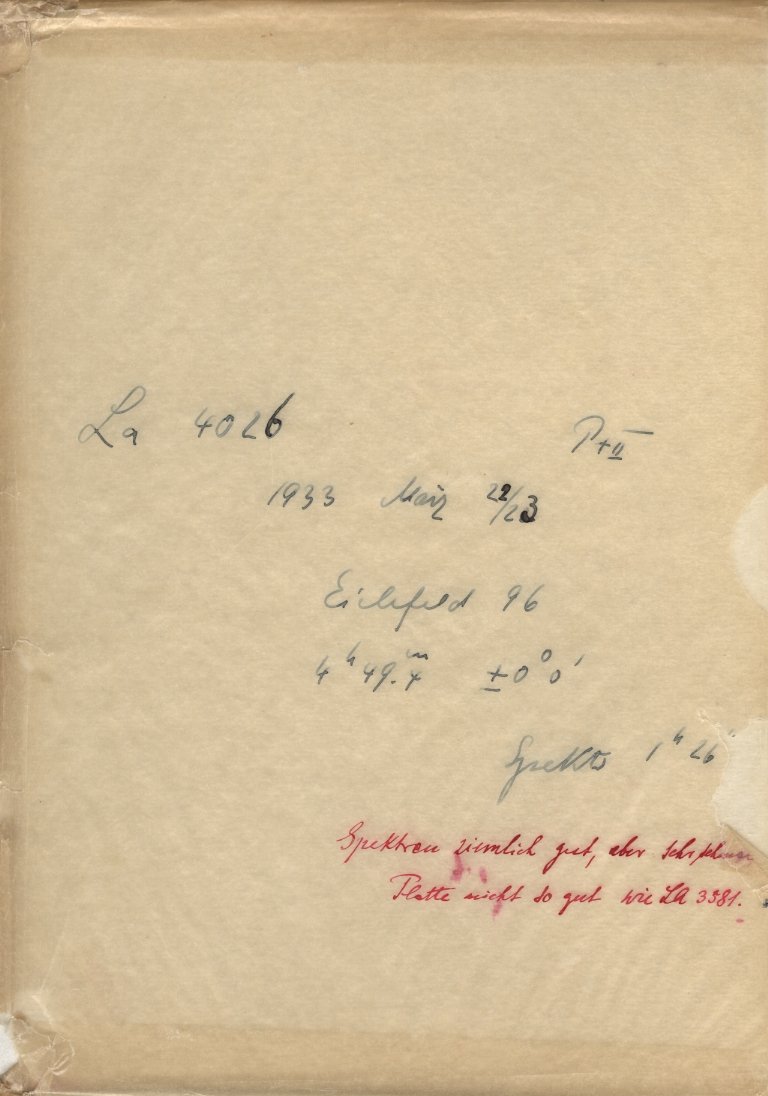 La 4026 P+II
1933 März 22/23
Eichfeld 96
4ʰ 49.ᵐ4 ±0° 0'
Spektr 1ʰ 26'
Spektren ziemlich gut, aber sehr
Platte nicht so gut wie LA 3581.